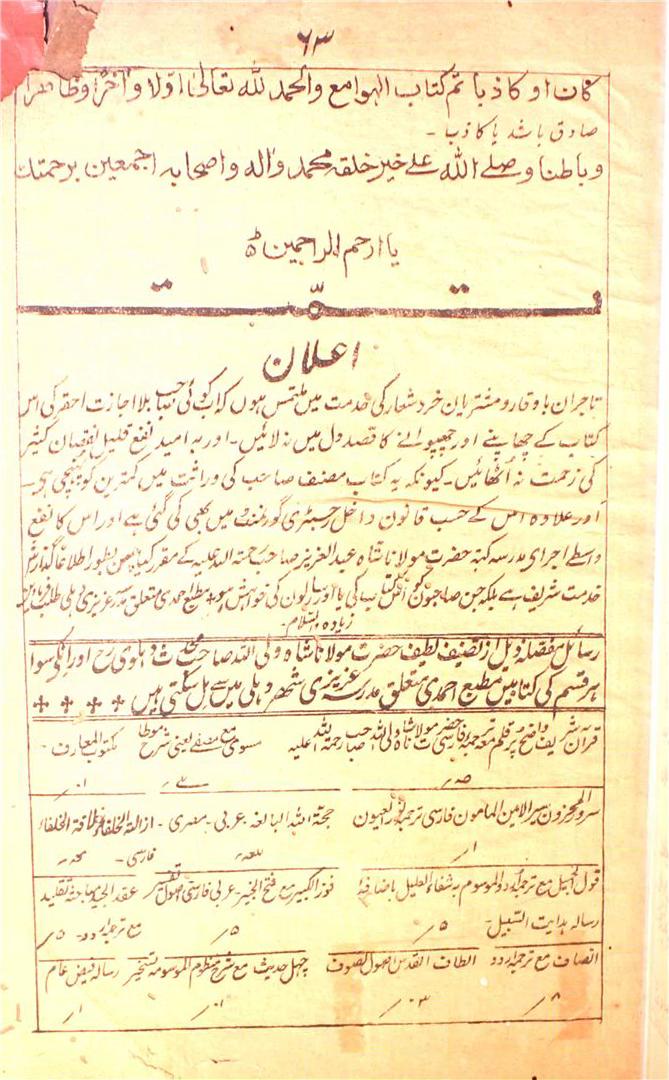 ٦٣
كان او كاذبا تم كتاب الهوامع والحمد لله تعالىٰ اولا واٰخرا وظاهرا
صادق باشد یا کاذب ۔
وباطنا وصلے الله علے خير خلقه محمد واٰله واصحابه اجمعين برحمتك
يا ارحم الراحمين
تمت
اعلان
تاجران باوقار و مشتریان خرد شعار کی خدمت میں ملتمس ہوں کہ اب کوئی صاحب بلا اجازت احقر کی اس
کتاب کے چھاپنے اور چھپوانے کا قصد دل میں نہ لائیں ۔ اور بہ امید نفع قلیل نقصان کثیر
کی زحمت نہ اُٹھائیں ۔ کیونکہ یہ کتاب مصنف صاحب کی وراثت میں کمترین کو پہنچی ہی ۔
اور علاوہ اس کے حسب قانون داخل رجسٹری گورنمنٹ میں بھی کی گئی ہے اور اس کا نفع
واسطے اجرای مدرسہ کہنہ حضرت مولانا شاہ عبد العزیز صاحب رحمتہ اللہ علیہ کے مقرر کیا بطور اطلاعاً گذارش
خدمت شریف ہے بلکہ جن صاحبوں کو اس کتاب کی یا اور رسالوں کی خواہش ہو مطبع احمدی متعلق مدرسہ عزیزی دہلی طلب فرماویں
زیادہ والسلام ۔
رسائل مفصلہ ذیل از تصنیف لطیف حضرت مولانا شاہ ولی اللہ صاحب محدث دہلوی رح اور انکی سوا
ہر قسم کی کتابیں مطبع احمدی متعلق مدرسہ عزیزی شہر دہلی میں سے مل سکتی ہیں
قرآن شریف واضح پر قلم معہ ترجمہ فارسی حضرت مولانا شاہ ولی اللہ صاحب رحمتہ اللہ علیہ مسوی مع مصفے یعنی شرح موطا مکتوب المعارف ۔
سرور المحزون سیر الامین المامون فارسی ترجمہ نور العیون حجتہ اللہ البالغہ عربی ۔ مصری ۔ ازالۃ الخلفاء خلافۃ الخلفاء
فارسی ۔
قول الجمیل مع ترجمہ اردو الموسوم بہ شفاء العلیل باضافہ فوز الکبیر مع فتح الخبیر عربی فارسی اصول تفسیر عقد الجید مباحثہ تقلید
رسالہ ہدایت السبیل ۔ ۵/ ۵/ مع ترجمہ اردو ۔ ۵/
انصاف مع ترجمہ اردو الطاف القدس اصول تصوف چہل حدیث مع شرح منظوم الموسومہ تسخیر رسالہ فیض عام
۸/ ۳/ ۱/ ۱/